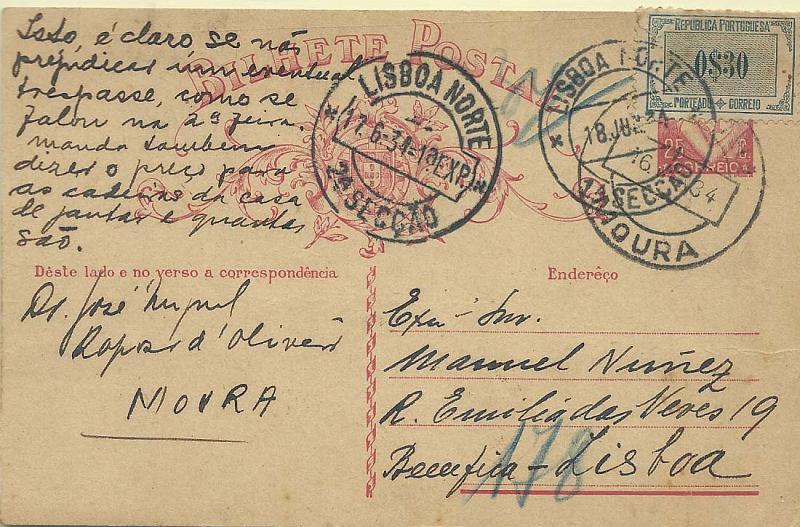 BILHETE POSTAL
Isto, é claro, se não
prejudicar um eventual
trespasse, como se
falou na 2ª feira.
manda também
dizer o preço para
as cadeiras da casa
de jantar e quantas
são.
REPUBLICA PORTUGUESA
0$30
PORTEADO CORREIO
LISBOA NORTE
17.6-34-10 EXP.
2ª SECÇÃO
LISBOA NORTE
18 JUN 34
SECÇÃO
16 34
MOURA
25 C.
CORREIO
Dêste lado e no verso a correspondência
Endereço
Dr. José Miguel
Raposo d'Oliveira
MOURA
Exmº Snr.
Manuel Nuñez
R. Emilia das Neves 19
Bemfica - Lisboa
178